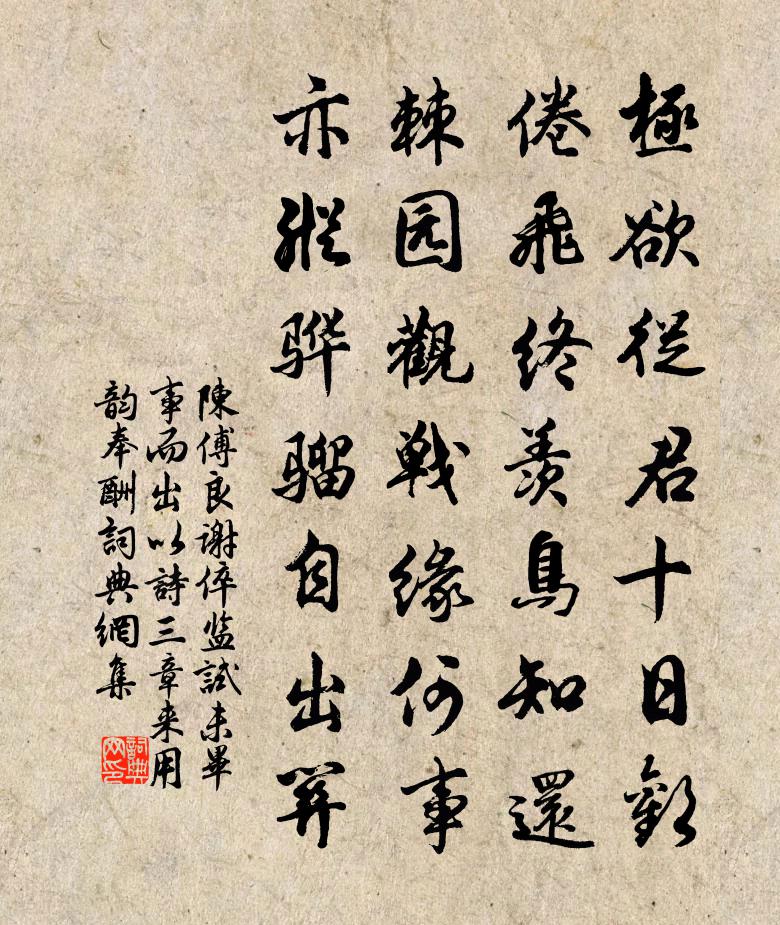 極欲從君十日歡
倦飛終羨鳥知還
棘园觀戦緣何事
亦縱骅骝自出關
陳傅良谢倅监試未畢
事而出以詩三章来用
韵奉酬詞典網集
詞典
网印